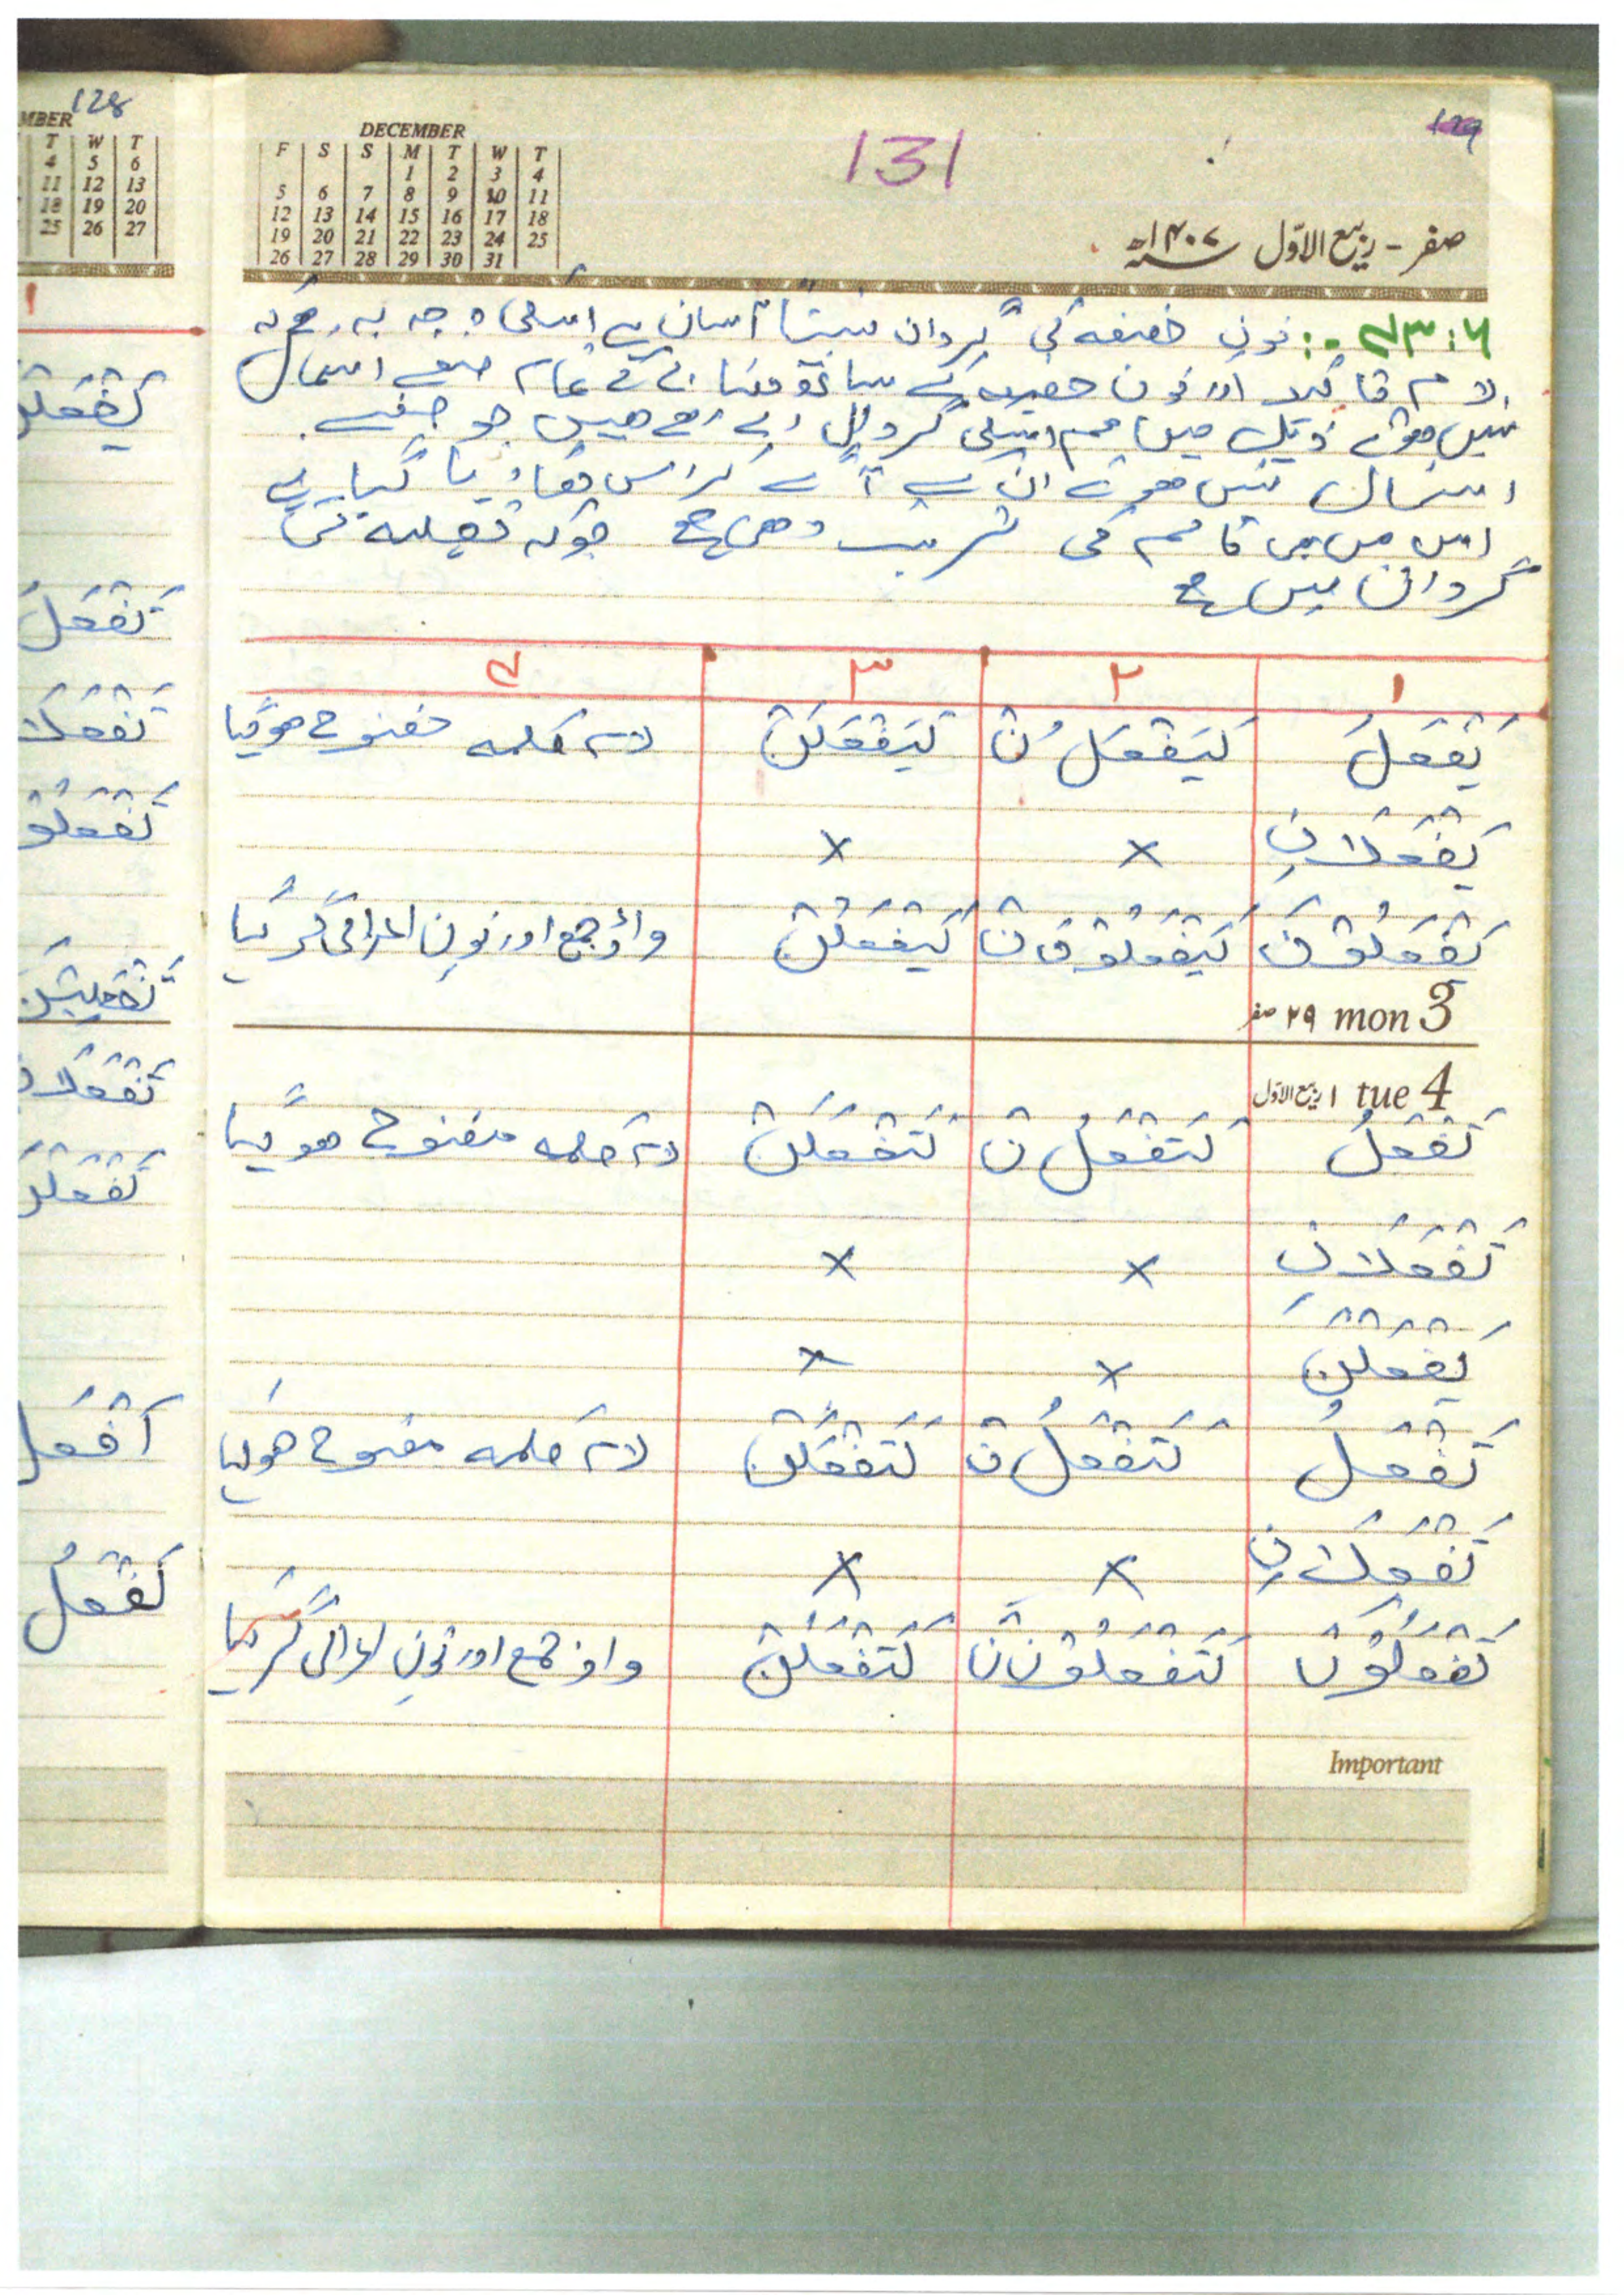 128
MBER
T W T
4 5 6
11 12 13
18 19 20
25 26 27
۱
تَفْعَلُ
اَفْعَلُ
نَفْعَلُ
129
131
DECEMBER
F S S M T W T
1 2 3 4
5 6 7 8 9 10 11
12 13 14 15 16 17 18
19 20 21 22 23 24 25
26 27 28 29 30 31
صفر - ربیع الاوّل ۱۴۰۷ھ
۴۳:۶ :۔ نونِ خفیفہ کی گردان نسبتاً آسان ہے اسکی وجہ یہ ہے کہ
لام تاکید اور نون خفیفہ کے ساتھ مضارع کے تمام صیغے استعمال
نہیں ہوتے ذیل میں ہم اسکی گردان دے رہے ہیں جو صیغے
استعمال نہیں ہوتے ان کے آگے کراس لگا دیا گیا ہے
اس میں بھی کالم کی ترتیب وہی ہے جوکہ ثقیلہ کی
گردان میں ہے
۱ ۲ ۳ ۴
یَفْعَلُ لَیَفْعَلُ نْ لَیَفْعَلَنْ لام کلمہ مفتوح ہوگیا
یَفْعَلَانِ × ×
یَفْعَلُوْنَ لَیَفْعَلُوْنَ نْ لَیَفْعَلُنْ واؤ جمع اور نونِ اعرابی گر گیا
۲۹ صفر mon 3
۱ ربیع الاوّل tue 4
تَفْعَلُ لَتَفْعَلُ نْ لَتَفْعَلَنْ لام کلمہ مفتوح ہوگیا
تَفْعَلَانِ × ×
یَفْعَلْنَ × ×
تَفْعَلُ لَتَفْعَلُ نْ لَتَفْعَلَنْ لام کلمہ مفتوح ہوگیا
تَفْعَلَانِ × ×
تَفْعَلُوْنَ لَتَفْعَلُوْنَ نْ لَتَفْعَلُنْ واؤ جمع اور نونِ اعرابی گر گیا
Important